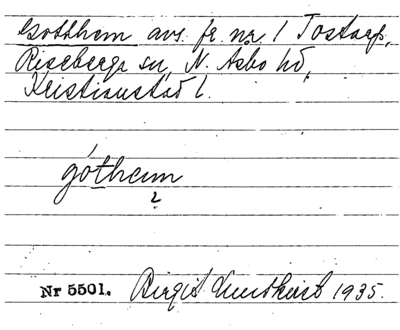 Gotthem avs. fr. nr. 1 Tostarp,
Riseberga sn, N. Åsbo hd,
Kristianstad l.
gótheım
2
Nr 5501. Birgit 1935.